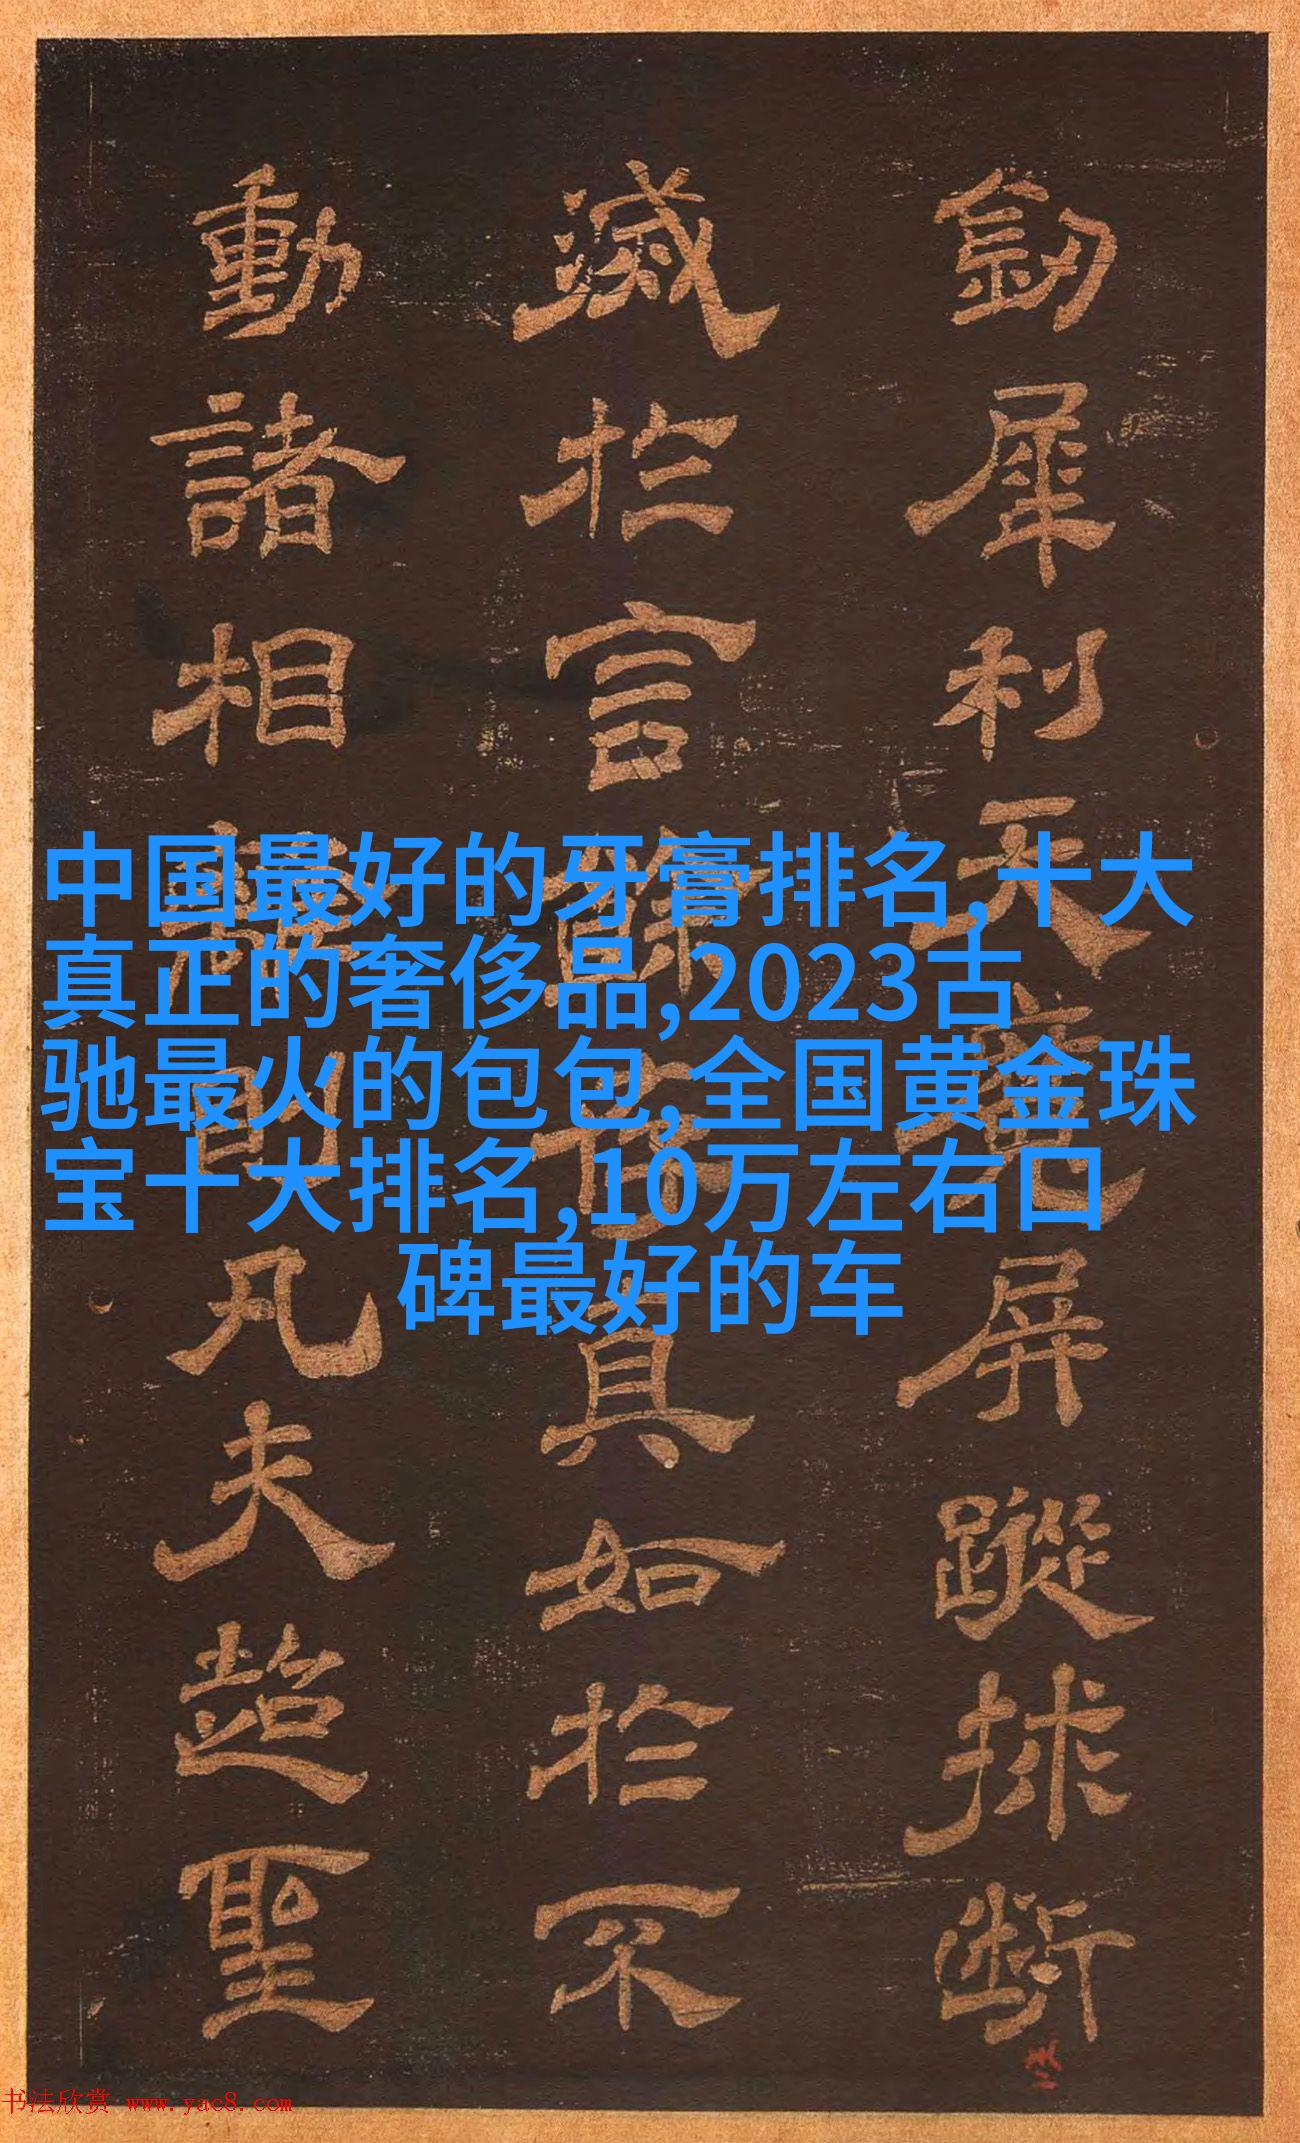 釰犀利天魔屏蹤排斷
滅於言
真如於不
動諸相
凡夫超聖
中国最好的牙膏排名,十大
真正的奢侈品,2023古
驰最火的包包,全国黄金珠
宝十大排名,10万左右口
碑最好的车
书法欣赏 www.yac8.com